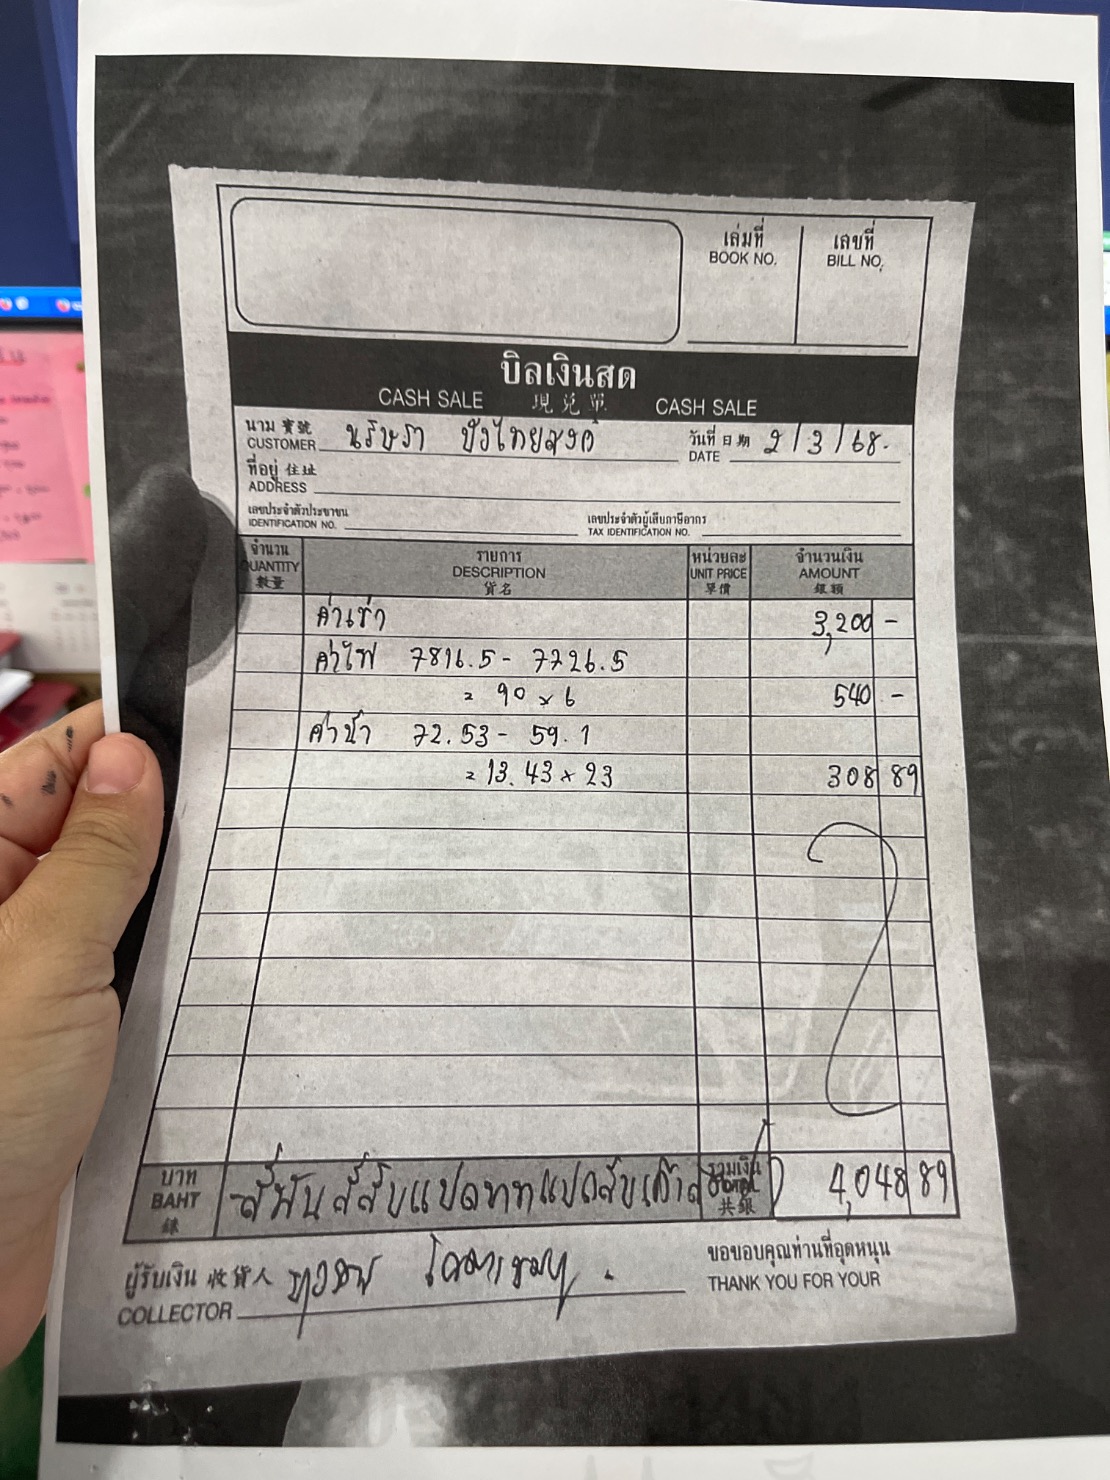 เล่มที่ เลขที่
BOOK NO. BILL NO.
บิลเงินสด
CASH SALE 現兌單 CASH SALE
นาม 寳號
CUSTOMER นริษรา
วันที่ 日期 2/3/68.
DATE
ที่อยู่ 住址
ADDRESS
เลขประจำตัวประชาชน เลขประจำตัวผู้เสียภาษีอากร
IDENTIFICATION NO. TAX IDENTIFICATION NO.
จำนวน รายการ หน่วยละ จำนวนเงิน
QUANTITY DESCRIPTION UNIT PRICE AMOUNT
數量 貨名 單價 銀額
ค่าเช่า 3,200 -
ค่าไฟ 7816.5 - 7726.5
= 90 x 6 540 -
ค่าน้ำ 72.53 - 59.1
= 13.43 x 23 308 89
บาท รวมเงิน
BAHT สี่พันสี่สิบแปดบาทแปดสิบเก้าส TOTAL 4,048 89
銖 共銀
ผู้รับเงิน 收貨人
COLLECTOR
ขอขอบคุณท่านที่อุดหนุน
THANK YOU FOR YOUR